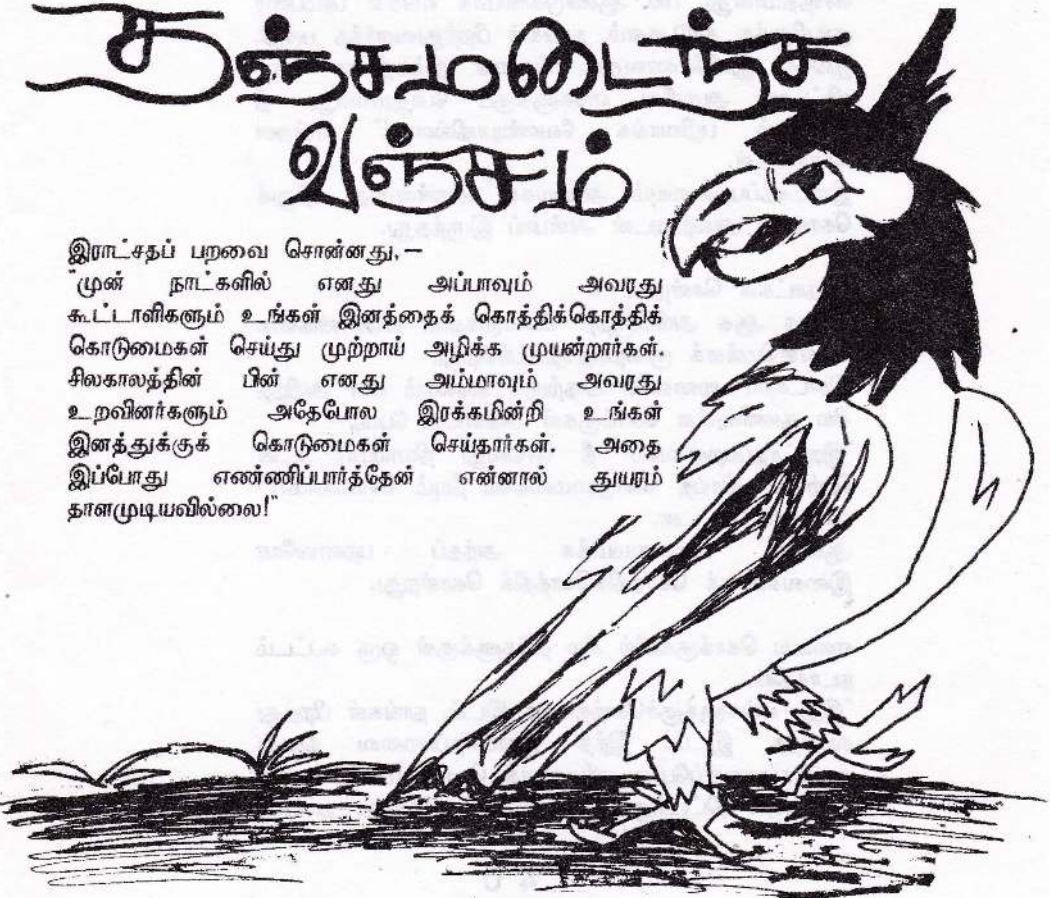 தஞ்சமடைந்த
வஞ்சம்
இராட்சதப் பறவை சொன்னது,—
"முன் நாட்களில் எனது அப்பாவும் அவரது
கூட்டாளிகளும் உங்கள் இனத்தைக் கொத்திக்கொத்திக்
கொடுமைகள் செய்து முற்றாய் அழிக்க முயன்றார்கள்.
சிலகாலத்தின் பின் எனது அம்மாவும் அவரது
உறவினர்களும் அதேபோல இரக்கமின்றி உங்கள்
இனத்துக்குக் கொடுமைகள் செய்தார்கள். அதை
இப்போது எண்ணிப்பார்த்தேன் என்னால் துயரம்
தாளமுடியவில்லை!"